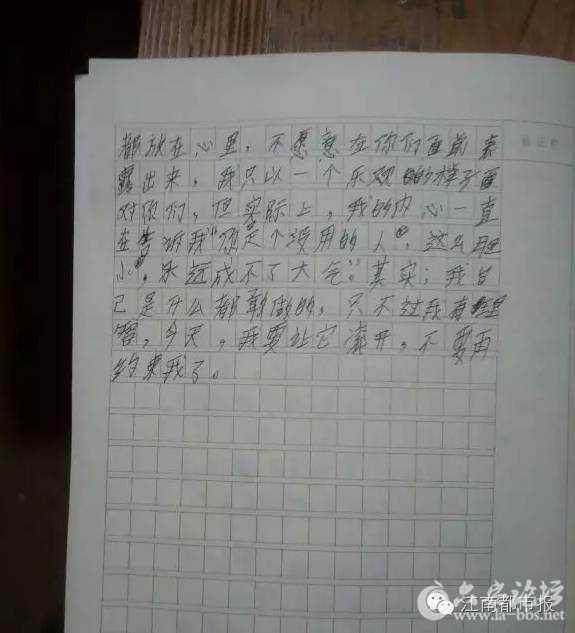 都放在心里，不愿意在你们面前表
露出来，我只以一个乐观的样子面
对你们，但实际上，我的内心一直
在告诉我“你是个没用的人”，这么胆
小，永远成不了大气。其实；我自
己是什么都敢做的，只不过我有理
智，今天，我要让它滚开，不要再
约束我了。
江南都市报
六安论坛
www.la-bbs.net